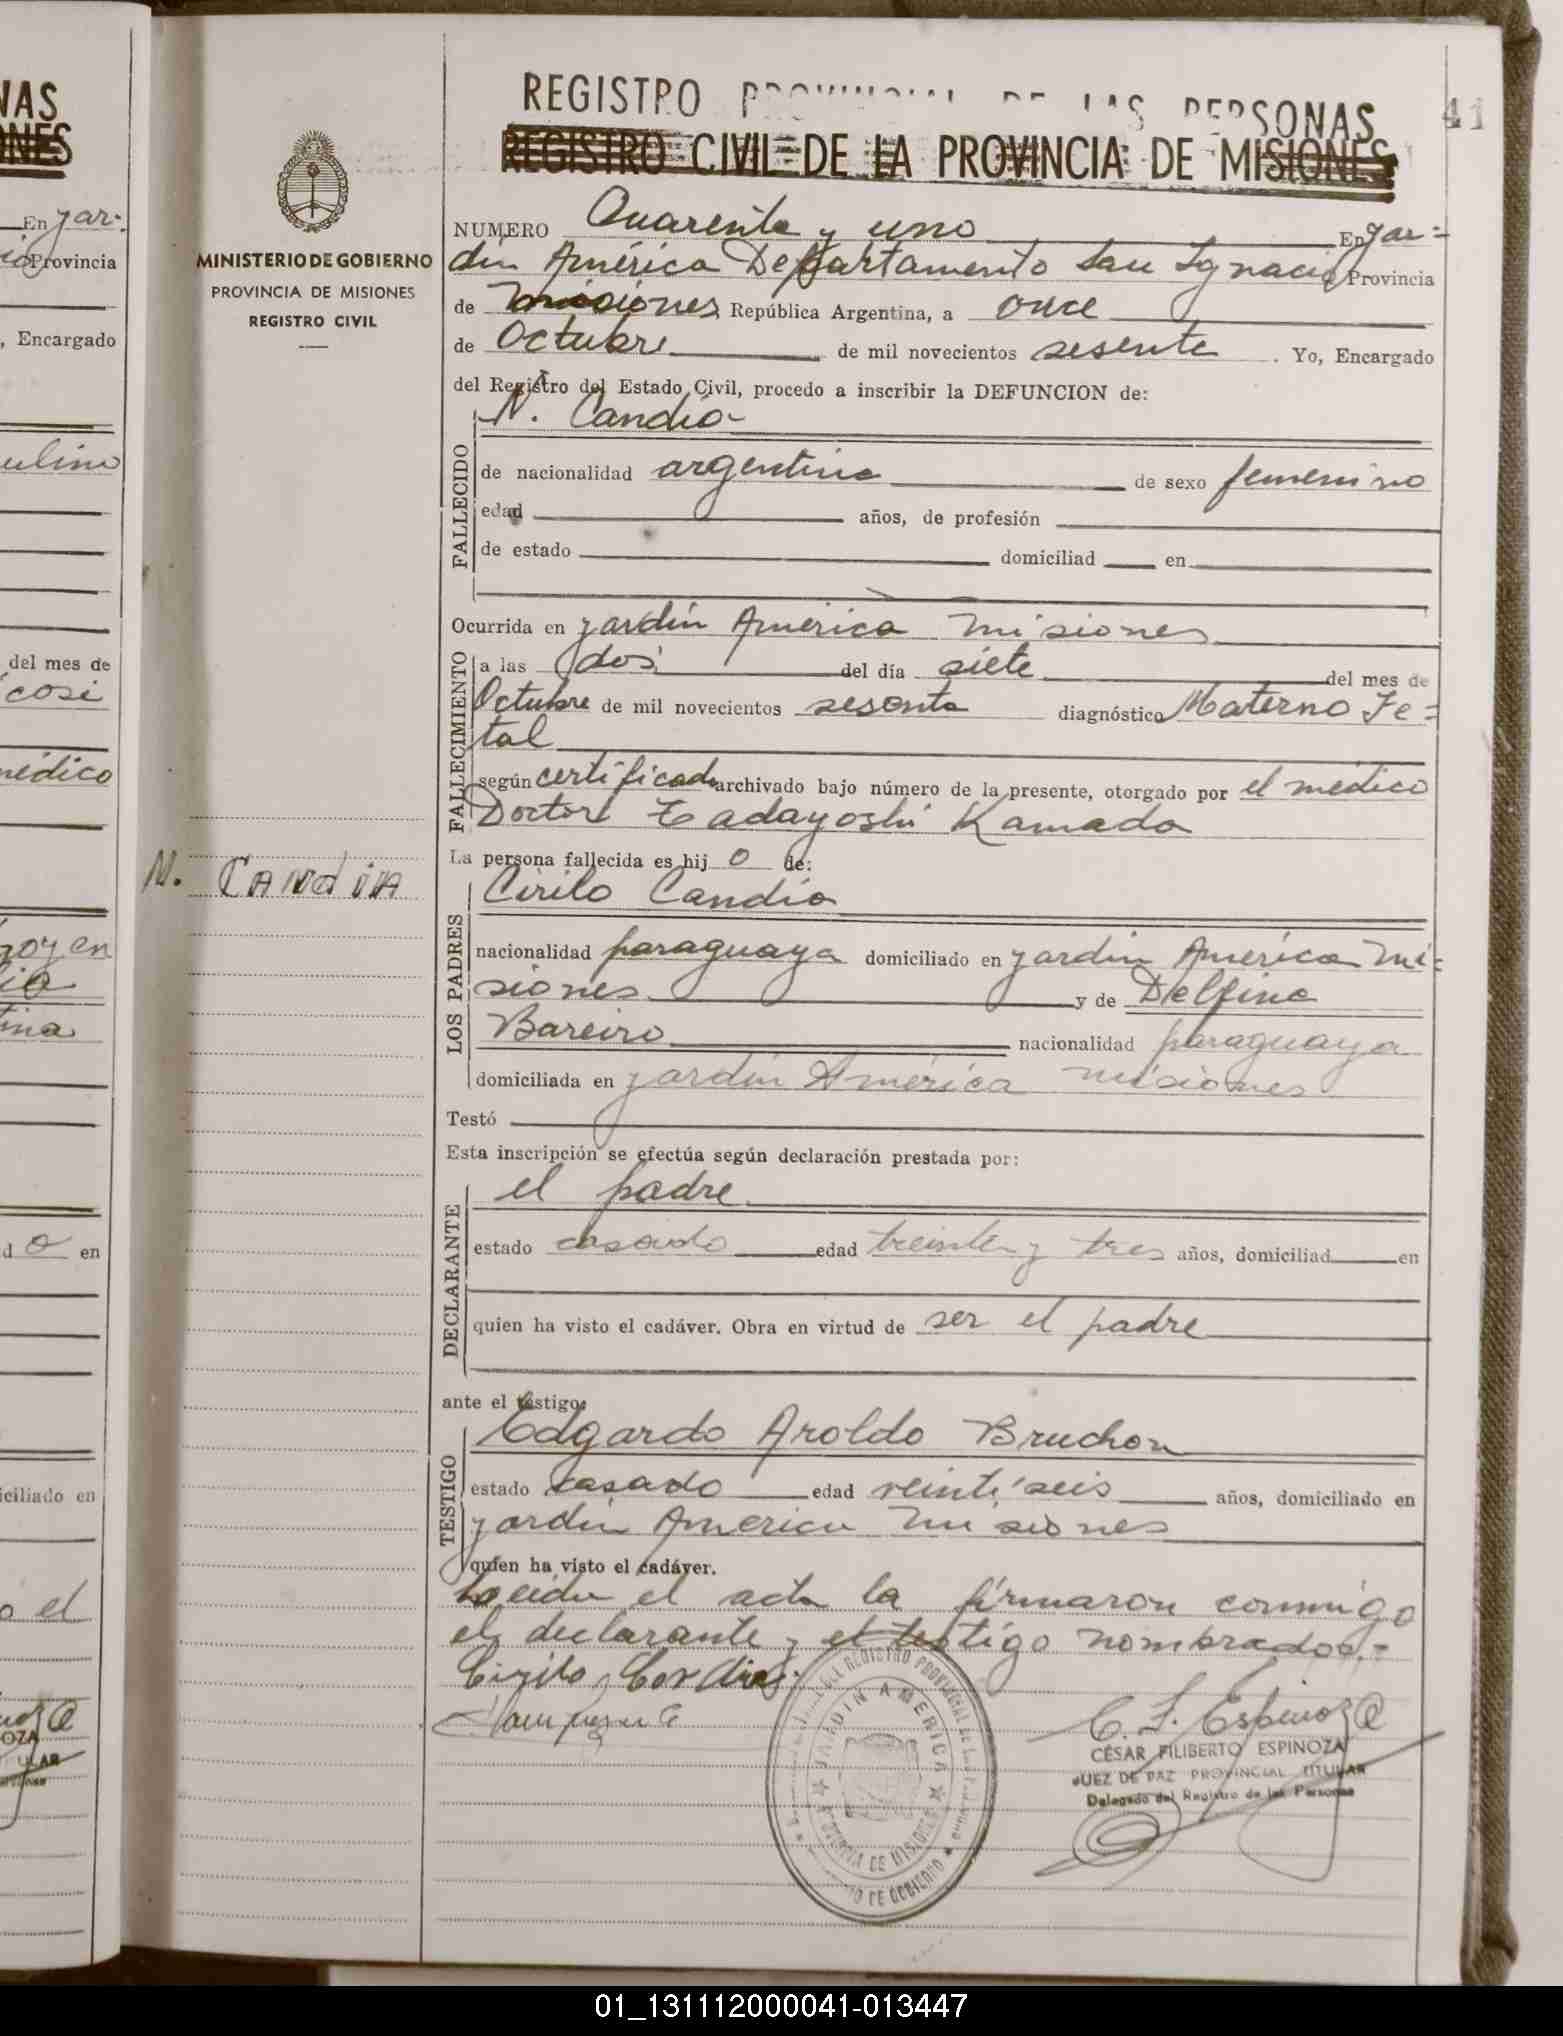 NAS
NES
En Jar-
Provincia
, Encargado
ulino
del mes de
cosi
médico
tina
d o en
iciliado en
o el
OZA
MINISTERIO DE GOBIERNO
PROVINCIA DE MISIONES
REGISTRO CIVIL
N. CANdiA
REGISTRO PROVINCIAL DE LAS PERSONAS 41
REGISTRO CIVIL DE LA PROVINCIA DE MISIONES
NUMERO Cuarenta y uno En Jar=
dín América Departamento San Ignacio Provincia
de Misiones República Argentina, a once
de Octubre de mil novecientos sesenta . Yo, Encargado
del Registro del Estado Civil, procedo a inscribir la DEFUNCION de:
N. Candia
FALLECIDO
de nacionalidad argentina de sexo femenino
edad años, de profesión
de estado domiciliad en
Ocurrida en jardín América Misiones
FALLECIMIENTO
a las dos del día siete del mes de
Octubre de mil novecientos sesenta diagnóstico Materno Fe=
tal
según certificado archivado bajo número de la presente, otorgado por el médico
Doctor Tadayoshi Kamada
La persona fallecida es hij o de:
LOS PADRES
Cirilo Candia
nacionalidad paraguaya domiciliado en jardín América Mi=
siones y de Delfina
Bareiro nacionalidad paraguaya
domiciliada en jardín América misiones
Testó
Esta inscripción se efectúa según declaración prestada por:
DECLARANTE
el padre
estado casado edad treinta y tres años, domiciliad en
quien ha visto el cadáver. Obra en virtud de ser el padre
ante el testigo:
TESTIGO
Edgardo Aroldo Bruchon
estado casado edad veintiseis años, domiciliado en
jardín América Misiones
quien ha visto el cadáver.
Leída el acta la firmaron conmigo
el declarante y el testigo nombrados.=
Cirilo Candia
C. F. Espinoza
CÉSAR FILIBERTO ESPINOZA
JUEZ DE PAZ PROVINCIAL TITULAR
Delegado del Registro de las Personas
DEL REGISTRO PROVINCIAL DE LAS PERSONAS
JARDIN AMERICA
PROVINCIA DE MISIONES
DE GOBIERNO
01_131112000041-013447